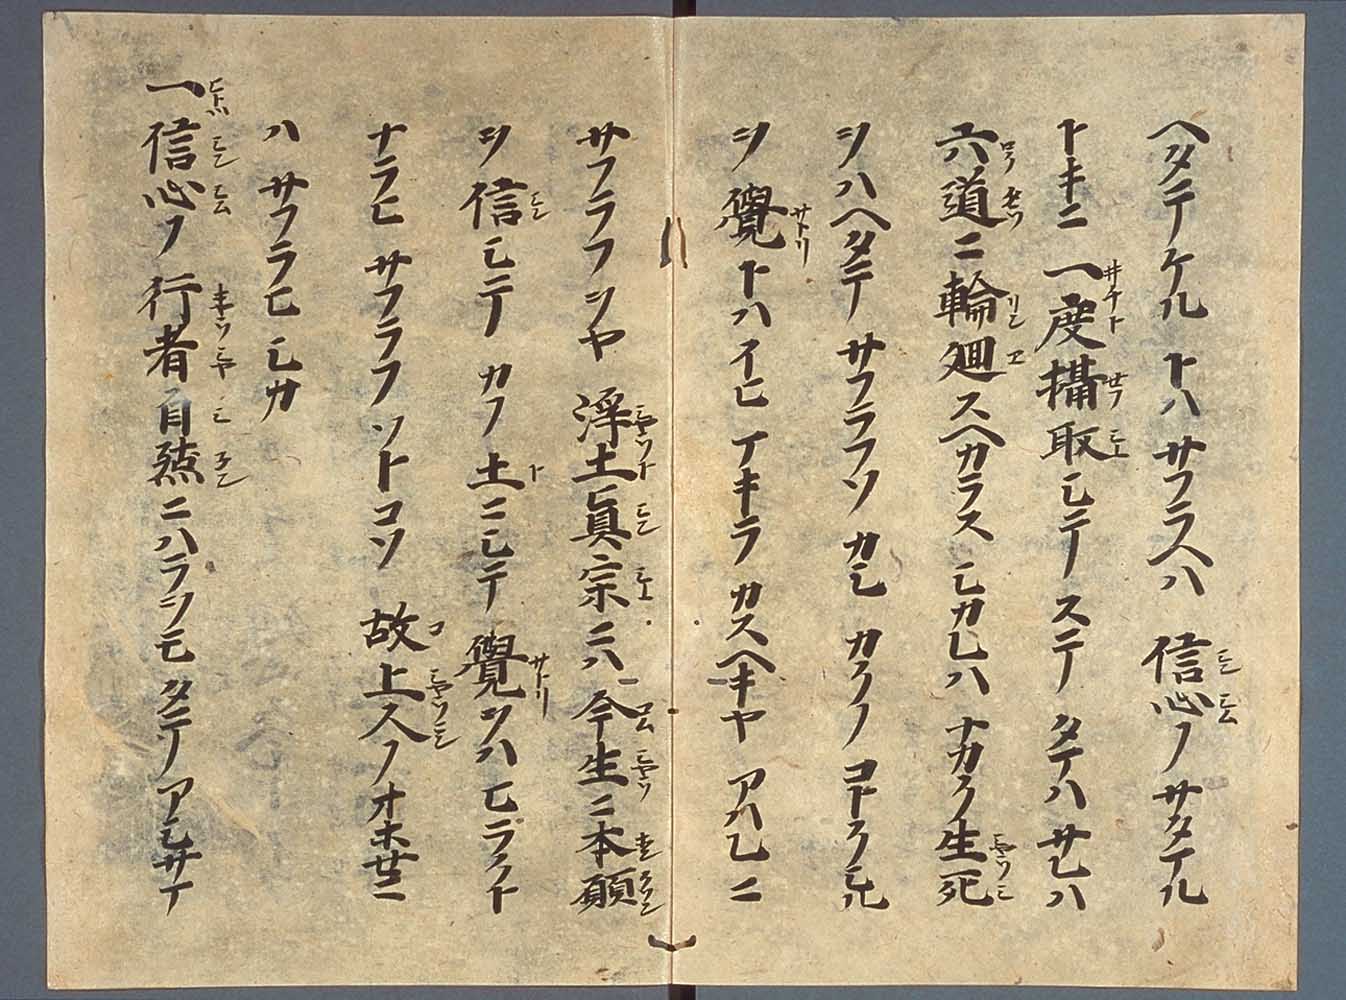 ヘタテケルトハサフラヘハ信心ノサタマル
トキニ一度攝取シテステタマハサレハ
六道ニ輪廻スヘカラスシカレハナカク生死
ヲハヘタテサフラフソカシカクノコトクシル
ヲ覺トハイヒマキラカスヘキヤアハレニ
サフラフヲヤ浮土眞宗ニハ今生ニ本願
ヲ信シテカノ土ニシテ覺ヲハヒラクト
ナラヒサフラフソトコソ故上人ノオホセニ
ハサフラヒシカ
一信心ノ行者自然ニハラヲモタテアシサマ